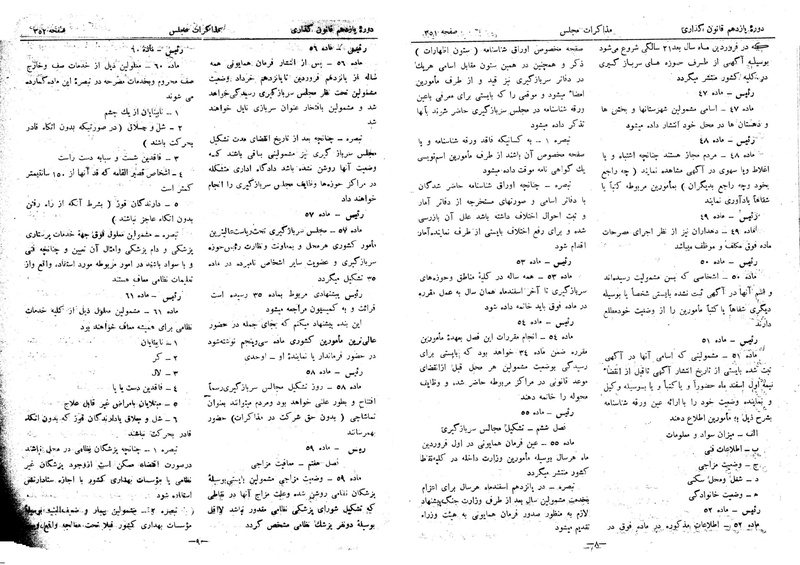 دورهٔ یازدهم قانون گذاری
مذاکرات مجلس
صفحه ۳۵۱
که در فروردین ماه سال بعد ۲۱ سالگی شروع می‌شود
بوسیله آگهی از طرف حوزه های سرباز گیری
در کلیه کشور منتشر میگردد
رئیس - ماده ۴۷
ماده ۴۷ - اسامی مشمولین شهرستانها و بخش ها
و دهستان ها در محل خود انتشار داده میشود
رئیس - ماده ۴۸
ماده ۴۸ - مردم مجاز هستند چنانچه اشتباه و یا
اغلاط و یا سهوی در آگهی مشاهده نمایند ( چه راجع
بخود وچه راجع بدیگران ) بمأمورین مربوطه کتباً یا
شفاهاً یادآوری نمایند
رئیس - ماده ۴۹
ماده ۴۹ - دهداران نیز از نظر اجرای مصرحات
ماده فوق مکلف و موظف میباشد
رئیس - ماده ۵۰
ماده ۵۰ - اشخاصی که بسن مشمولیت رسیده‌اند
و اسم آنها در آگهی ثبت نشده بایستی شخصاً یا بوسیله
دیگری شفاهاً یا کتباً مأمورین را از وضعیت خودمطلع
دارند
رئیس - ماده ۵۱
ماده ۵۱ - مشمولینی که اسامی آنها در آگهی
ثبت شده بایستی از تاریخ انتشار آگهی تا قبل از انقضاء
نیمه اول اسفند ماه حضوراً و یا کتباً و یا بوسیله وکیل
و نماینده وضعیت خود را با ارائه عین ورقه شناسنامه
بشرح ذیل به مأمورین اطلاع دهند
الف - میزان سواد و معلومات
ب - اطلاعات فنی
ج - وضعیت مزاجی
د - شغل و محل سکنی
ه - وضعیت خانوادگی
رئیس - ماده ۵۲
ماده ۵۲ - اطلاعات مذکوره در ماده فوق در
صفحه مخصوص اوراق شناسنامه ( ستون اظهارات )
ذکر و همچنین در همین ستون مقابل اسامی هریک
در دفاتر سربازگیری نیز قید و از طرف مأمورین
امضاء میشود و موقعی را که بایستی برای معرفی باعین
ورقه شناسنامه در مجلس سربازگیری حاضر شوند بآنها
تذکر داده میشود
تبصره ۱ - به کسانیکه فاقد ورقه شناسنامه و یا
صفحه مخصوص آن باشند از طرف مأمورین اسم‌نویسی
یک گواهی نامه موقت داده میشود
تبصره - چنانچه اوراق شناسنامه حاضر شدگان
با دفاتر اسامی و صورتهای مستخرجه از دفاتر آمار
و ثبت احوال اختلاف داشته باشد علل آن بازرسی
شده و برای رفع اختلاف بایستی از طرف نماینده آمار
اقدام شود
رئیس - ماده ۵۳
ماده ۵۳ - همه ساله در کلیهٔ مناطق وحوزه‌های
سربازگیری تا آخر اسفندماه همان سال به عمل مقرره
در ماده فوق باید خاتمه داده شود
رئیس - ماده ۵۴
ماده ۵۴ - انجام مقررات این فصل بعهدهٔ مأمورین
مقرره ضمن ماده ۳۴ خواهد بود که بایستی برای
رسیدگی بوضعیت مشمولین هر محل قبل ازانقضای
موعد قانونی در مراکز مربوطه حاضر شده و وظایف
محوله را خاتمه دهند
رئیس - ماده ۵۵
فصل ششم - تشکیل مجالس سربازگیری
ماده ۵۵ - عین فرمان همایونی در اول فروردین
ماه هرسال بوسیله مأمورین وزارت داخله در کلیه‌نقاط
کشور منتشر میگردد
تبصره - در پانزدهم اسفندماه هرسال برای التزام
بخدمت مشمولین سال بعد از طرف وزارت جنگ‌پیشنهاد
لازم به منظور صدور فرمان همایونی به هیئت وزراء
تقدیم میشود
-۸-
دورهٔ یازدهم قانون گذاری
مذاکرات مجلس
صفحه ۳۵۲
رئیس - ماده ۵۶
ماده ۵۶ - پس از انتشار فرمان همایونی همه
ساله از پانزدهم فروردین تاپانزدهم خرداد بوضعیت
مشمولین تحت نظر مجلس سربازگیری رسیدگی‌خواهد
شد و مشمولین بافتخار عنوان سربازی نایل خواهند
شد
تبصره - چنانچه بعد از تاریخ انقضای مدت تشکیل
مجلس سرباز گیری نیز مشمولینی باقی باشند که
وضعیت آنها روشن نشده باشد دادگاه اداری متشکله
در مراکز حوزه‌ها وظایف مجلس سربازگیری را انجام
خواهند داد
رئیس - ماده ۵۷
ماده ۵۷ - مجلس سربازگیری تحت‌ریاست‌عالیترین
مأمور کشوری هرمحل و بمعاونت و نظارت رئیس‌حوزه
سربازگیری و عضویت سایر اشخاص نامبرده در ماده
۳۵ تشکیل میگردد
رئیس پیشنهادی مربوط بماده ۳۵ رسیده است
قرائت و به کمیسیون مراجعه میشود
این بنده پیشنهاد میکنم که بجای جمله در حضور
عالی‌ترین مأمورین کشوری ماده سی‌وپنجم نوشته‌شود
در حضور فرماندار یا نمایندهٔ او - اوحدی
رئیس - ماده ۵۸
ماده ۵۸ - روز تشکیل مجالس سربازگیری‌رسماً
افتتاح و بطور علنی خواهد بود ومردم میتوانند بعنوان
تماشاچی ( بدون حق شرکت در مذاکرات ) حضور
بهمرسانند
رئیس - ماده ۵۹
فصل هفتم - معافیت مزاجی
ماده ۵۹ - وضعیت مزاجی مشمولین بایستی‌بوسیلهٔ
پزشکان نظامی روشن شده وعلت مزاج آنها در نقاطی
که تشکیل شورای پزشکی نظامی مقدور نباشد لااقل
بوسیلهٔ دونفر پزشک نظامی مشخص گردد
رئیس - ماده ۶۰
ماده ۶۰ - معلولین ذیل از خدمات صف وخارج
صف محروم وبخدمات مصرحه در تبصرهٔ این ماده گمارده
می شوند
۱ - نابینایان از یک چشم
۲ - شل و چلاق ( در صورتیکه بدون اتکاء قادر
بحرکت باشند )
۳ - فاقدین شست و سبابه دست راست
۴ - اشخاص قصیر القامه که قد آنها از ۱۵۰ سانتیمتر
کمتر است
۵ - دارندگان قوز ( بشرط آنکه از راه رفتن
بدون اتکاء عاجز نباشند )
تبصره - مشمولین معلول فوق جهة خدمات پرستاری
پزشکی و دام پزشکی وامثال آن تعیین و چنانچه فنی
و با سواد باشند در امور مربوطه مورد استفاده واقع واز
تعلیمات نظامی معاف هستند
رئیس - ماده ۶۱
ماده ۶۱ - مشمولین معلول ذیل از کلیه خدمات
نظامی برای همیشه معاف خواهند بود
۱ - نابینایان
۲ - کر
۳ - لال
۴ - فاقدین دست یا پا
۵ - مبتلایان بامراض غیر قابل علاج
۶ - شل و چلاق یادارندگان قوز که بدون اتکاء
قادر بحرکت نباشند
تبصره ۱ - چنانچه پزشکان نظامی در محل نباشند
درصورت اقتضاء ممکن است ازوجود پزشکان غیر
نظامی یا مؤسسات بهداری کشور با اجازه ستادارتش
استفاده شود
تبصره ۲ - مشمولین بیمار و ضعیف‌البنیه بوسیله
مؤسسات بهداری کشور قبلا تحت معالجه واقع
-۹-